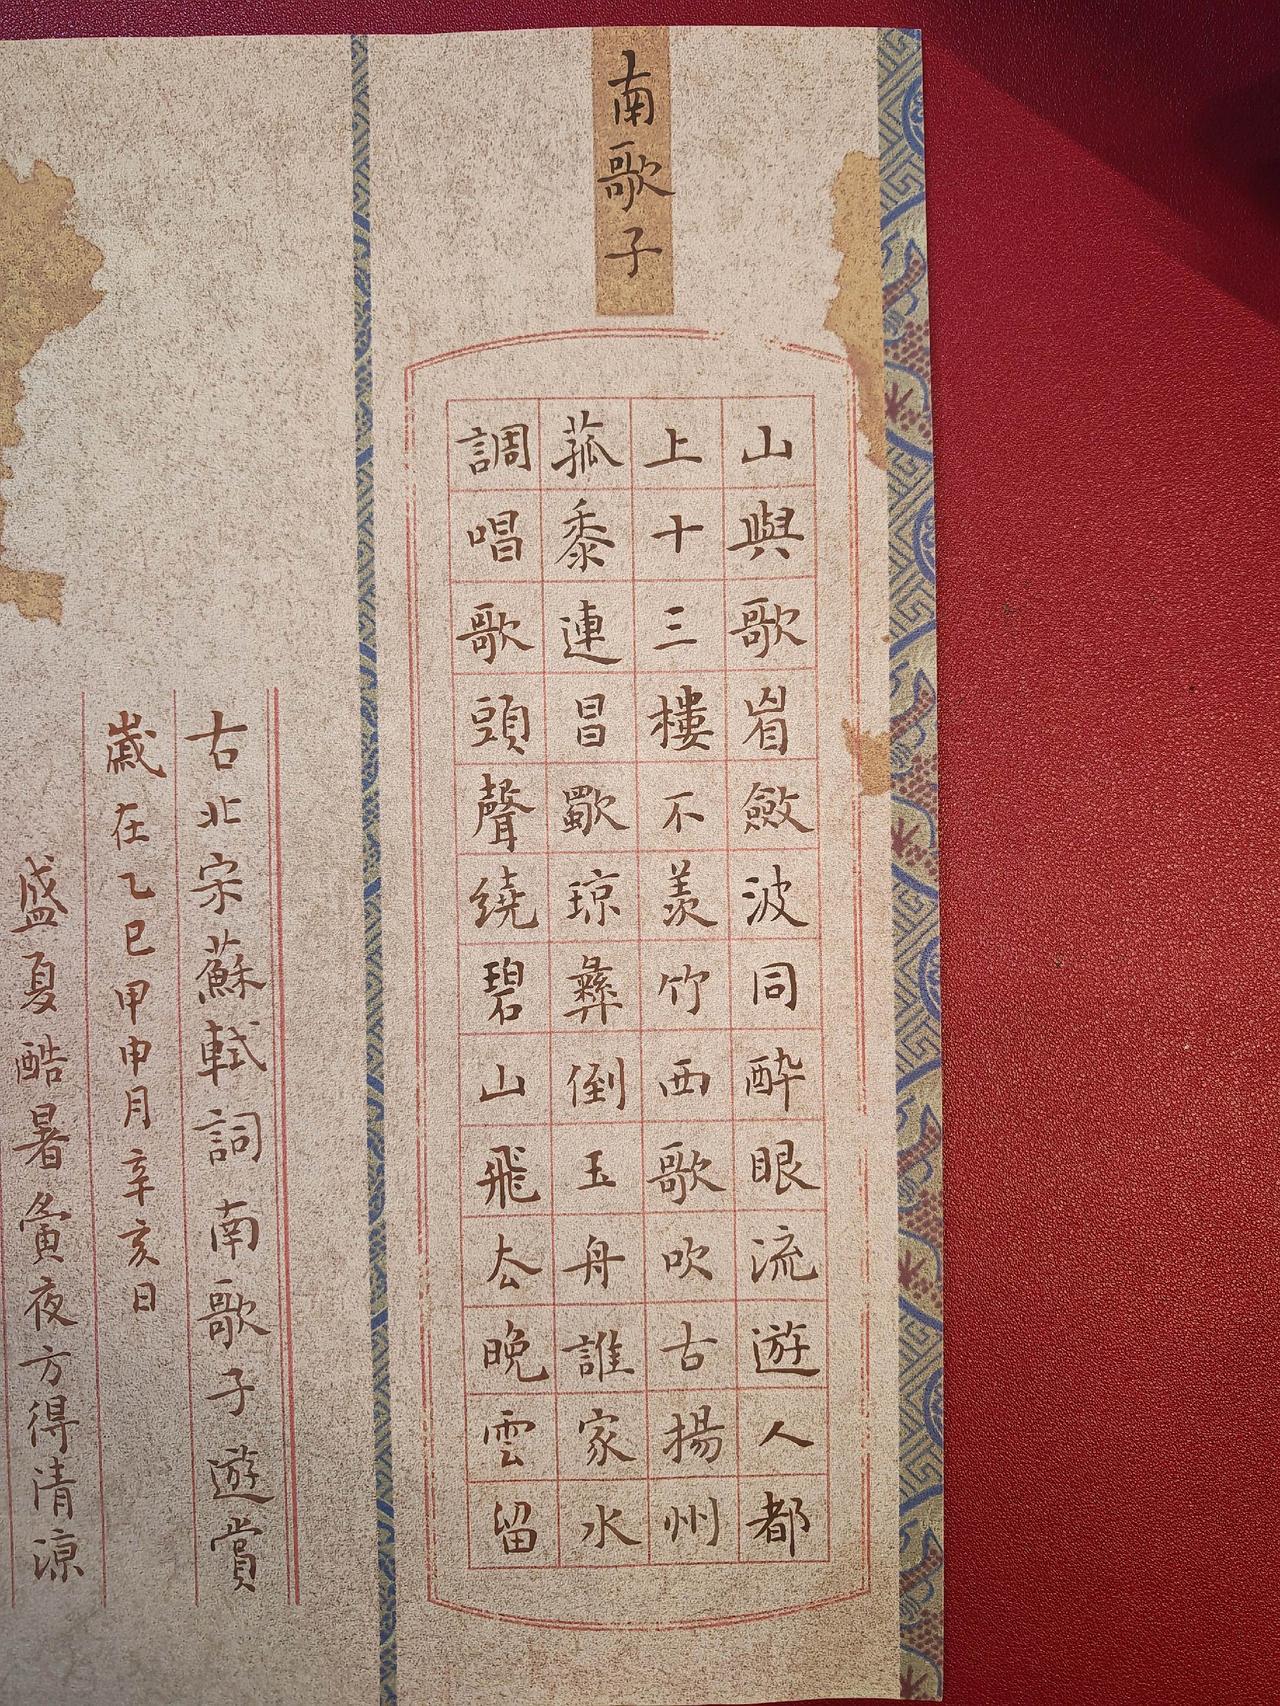 南歌子
山與歌眉斂波同醉眼流遊人都
上十三樓不羨竹西歌吹古揚州
菰黍連昌歜琼彝倒玉舟誰家水
調唱歌頭聲繞碧山飛去晚雲留
右北宋蘇軾詞南歌子遊賞
歲在乙巳甲申月辛亥日
盛夏酷暑夤夜方得清涼